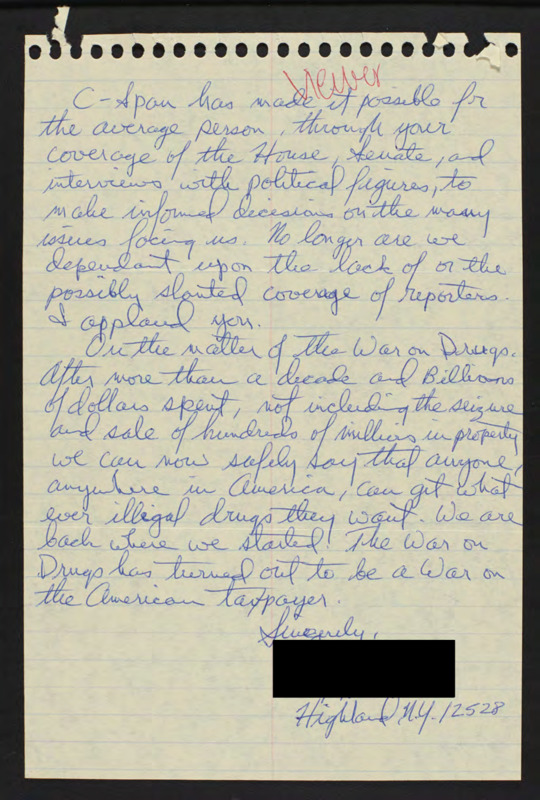 viewer
C-Span has made it possible for
the average person, through your
coverage of the House, Senate, and
interviews with political figures, to
make informed decesions on the many
issues facing us. No longer are we
dependant upon the lack of or the
possibly slanted coverage of reporters.
I applaud you.
On the matter of the War on Drugs.
After more than a decade and Billions
of dollars spent, not including the seizure
and sale of hundreds of millions in property
we can now safely say that anyone,
anywhere in America, can get what
ever illegal drugs they want. We are
back where we started! The War on
Drugs has turned out to be a War on
the American taxpayer.
Sincerely,
Highland N.Y. 12528